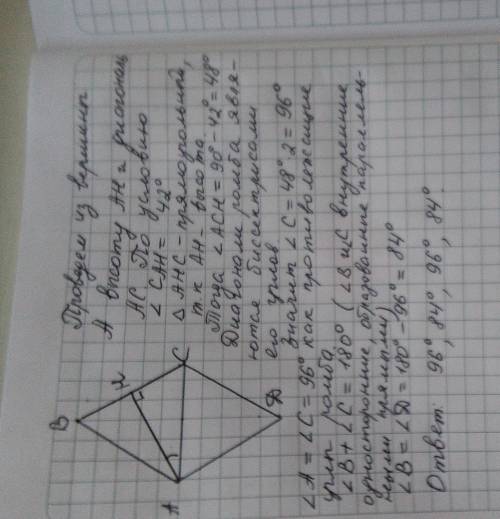 Проведем из вершины
А высоту АН и диагональ
АС По условию
∠ САН = 42°
△ АНС - прямоугольный,
т.к АН - высота.
Тогда ∠АСН = 90° - 42° = 48°
Диагонали ромба явля-
ются биссектрисами
его углов
Значит ∠С = 48° · 2 = 96°
B
H
C
A
D
∠А = ∠С = 96° как противолежащие
углы ромба.
∠В + ∠С = 180° ( ∠В и ∠С внутренние
односторонние, образованные параллель-
ными прямыми)
∠В = ∠D = 180° - 96° = 84°
Ответ: 96°, 84°, 96°, 84°.